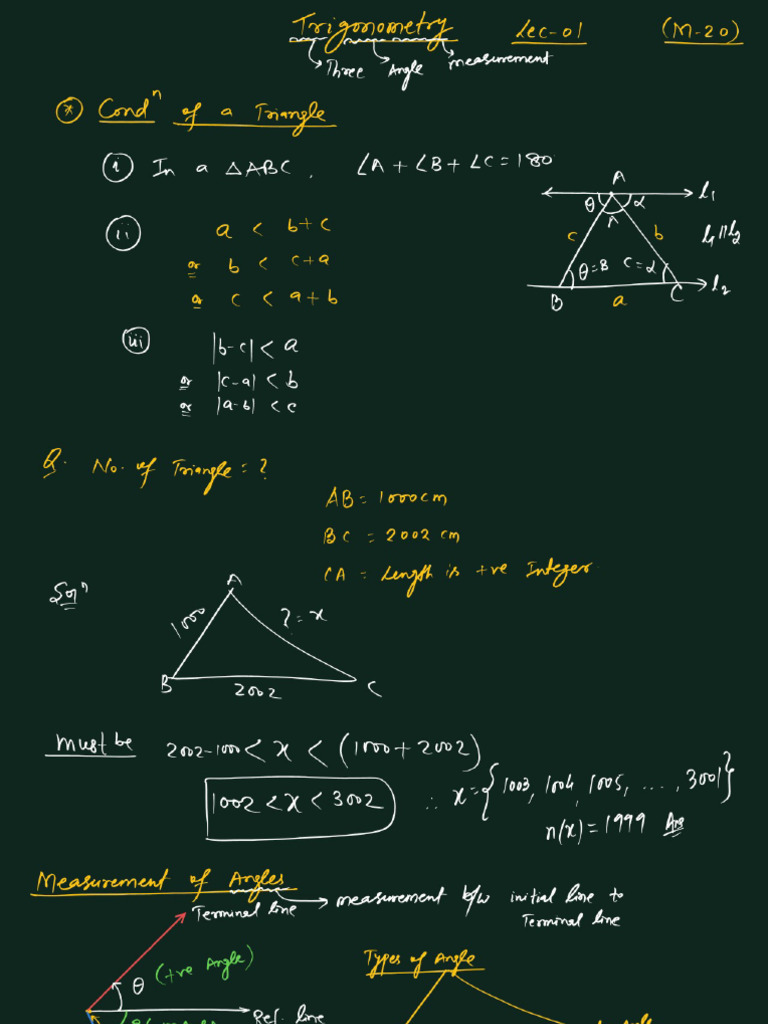 Trigonometry Lec-01 (M-20)
Three Angle measurement
* Condn of a Triangle
(i) In a △ABC, ∠A + ∠B + ∠C = 180
(ii) a < b+c
or b < c+a
or c < a+b
A
l1
θ α
A
c b
l1 || l2
θ=B C=α
B a C l2
(iii) |b-c| < a
or |c-a| < b
or |a-b| < c
Q. No. of Triangle = ?
AB = 1000cm
BC = 2002 cm
CA = Length is +ve Integer
Soln
A
1000 ? = x
B 2002 C
must be 2002-1000 < x < (1000 + 2002)
1002 < x < 3002 ∴ x = {1003, 1004, 1005, ..., 3001}
n(x) = 1999 Ans
Measurement of Angles
Terminal line → measurement b/w initial line to
Terminal line
(+ve Angle)
θ
Ref. line
Types of Angle